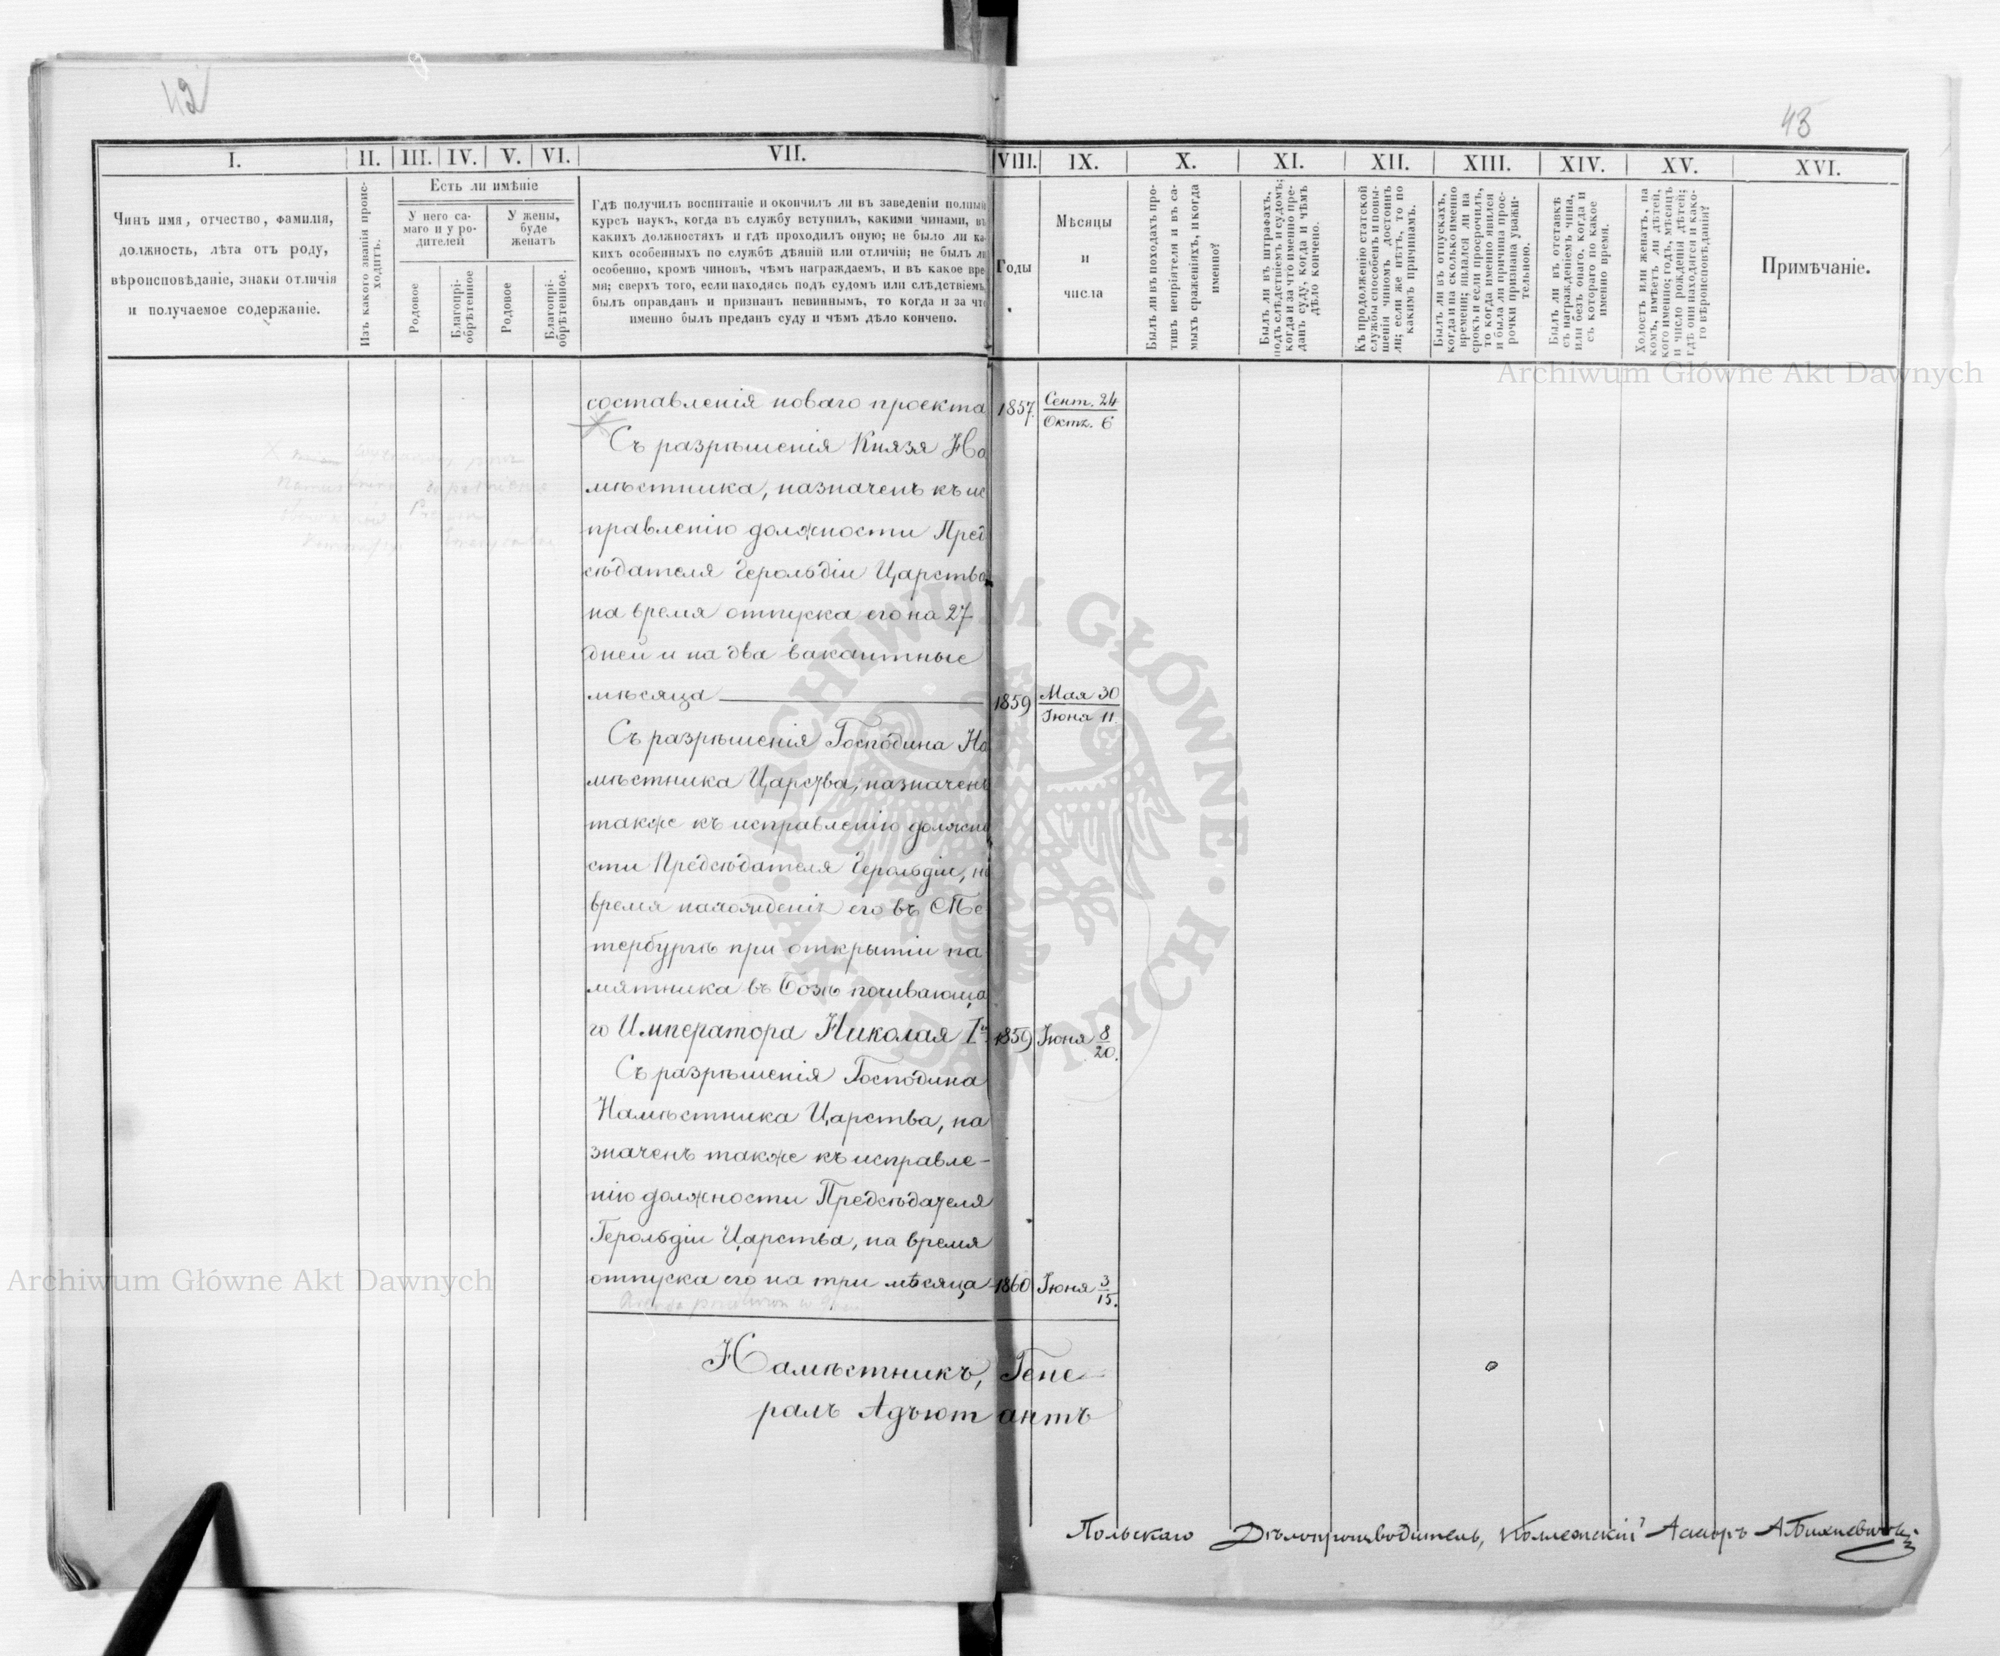 42
43
I.
II.
III.
IV.
V.
VI.
VII.
VIII.
IX.
X.
XI.
XII.
XIII.
XIV.
XV.
XVI.
Чинъ имя, отчество, фамилія,
должность, лѣта отъ роду,
вѣроисповѣданіе, знаки отличія
и получаемое содержаніе.
Изъ какого званія проис-
ходитъ.
Есть ли имѣніе
У него са-
маго и у ро-
дителей
У жены,
буде
женатъ
Родовое
Благопрі-
обрѣтенное
Родовое
Благопрі-
обрѣтенное.
Гдѣ получилъ воспитаніе и окончилъ ли въ заведеніи полный
курсъ наукъ, когда въ службу вступилъ, какими чинами, въ
какихъ должностяхъ и гдѣ проходилъ оную; не было ли ка-
кихъ особенныхъ по службѣ дѣяній или отличій; не былъ ли
особенно, кромѣ чиновъ, чѣмъ награждаемъ, и въ какое вре-
мя; сверхъ того, если находясь подъ судомъ или слѣдствіемъ,
былъ оправданъ и признанъ невиннымъ, то когда и за что
именно былъ преданъ суду и чѣмъ дѣло кончено.
Годы
Мѣсяцы
и
числа
Былъ ли въ походахъ про-
тивъ непріятеля и въ са-
мыхъ сраженіяхъ, и когда
именно?
Былъ ли въ штрафахъ,
подъ слѣдствіемъ и судомъ;
когда и за что именно пре-
данъ суду, когда и чѣмъ
дѣло кончено.
Къ продолженію статской
службы способенъ и повы-
шенія чиномъ достоинъ
ли; если же нѣтъ, то по
какимъ причинамъ.
Былъ ли въ отпускахъ,
когда и на сколько именно
времени; являлся ли на
срокъ и если просрочилъ,
то когда именно явился
и была ли причина прос-
рочки признана уважи-
тельною.
Былъ ли въ отставкѣ
съ награжденіемъ чина,
или безъ онаго, когда и
съ котораго по какое
именно время.
Холостъ или женатъ, на
комъ, имѣетъ ли дѣтей,
кого именно; годъ, мѣсяцъ
и число рожденія дѣтей;
гдѣ они находятся и како-
го вѣроисповѣданія?
Примѣчаніе.
составленія новаго проекта 1857. Сент. 24
Окт. 6
Съ разрѣшенія Князя На
мѣстника, назначенъ къ ис
правленію должности Пред
сѣдателя Герольдіи Царства
на время отпуска его на 27
дней и на два вакантные
мѣсяца 1859 Мая 30
Іюня 11.
Съ разрѣшенія Господина На
мѣстника Царства, назначенъ
также къ исправленію должно
сти Предсѣдателя Герольдіи, на
время нахожденія его въ СПе
тербургѣ при открытіи па
мятника въ Бозѣ почивающа
го Императора Николая Iго 1859 Іюня 8
20.
Съ разрѣшенія Господина
Намѣстника Царства, на
значенъ также къ исправле-
нію должности Предсѣдателя
Герольдіи Царства, на время
отпуска его на три мѣсяца 1860 Іюня 3
15.
Намѣстникъ, Гене-
ралъ Адъютантъ
Польскаго Дѣлопроизводитель, Коллежскій
Archiwum Główne Akt Dawnych
Archiwum Główne Akt Dawnych
ARCHIWUM GŁÓWNE AKT DAWNYCH